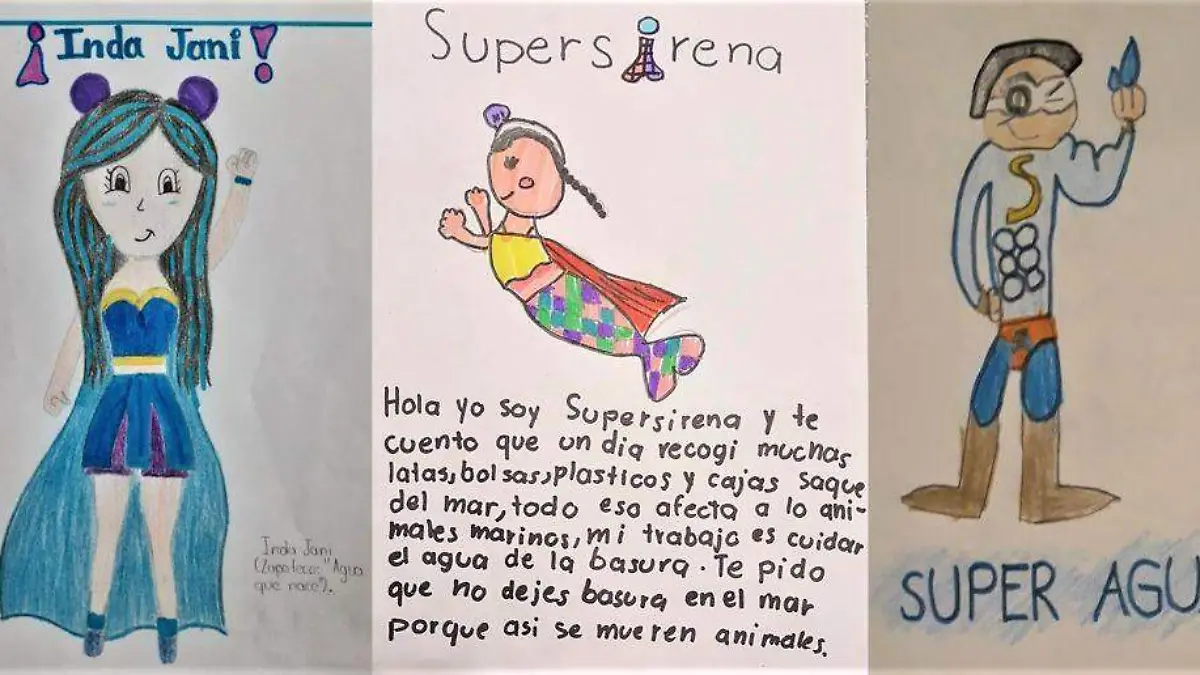 ¡Inda Jani!
Inda Jani
(Zapoteco: "Agua
que nace").
Supersirena
Hola yo soy Supersirena y te
cuento que un dia recogi muchas
latas, bolsas, plasticos y cajas saque
del mar, todo eso afecta a lo ani-
males marinos, mi trabajo es cuidar
el agua de la basura. Te pido
que no dejes basura en el mar
porque asi se mueren animales.
S
SUPER AGU